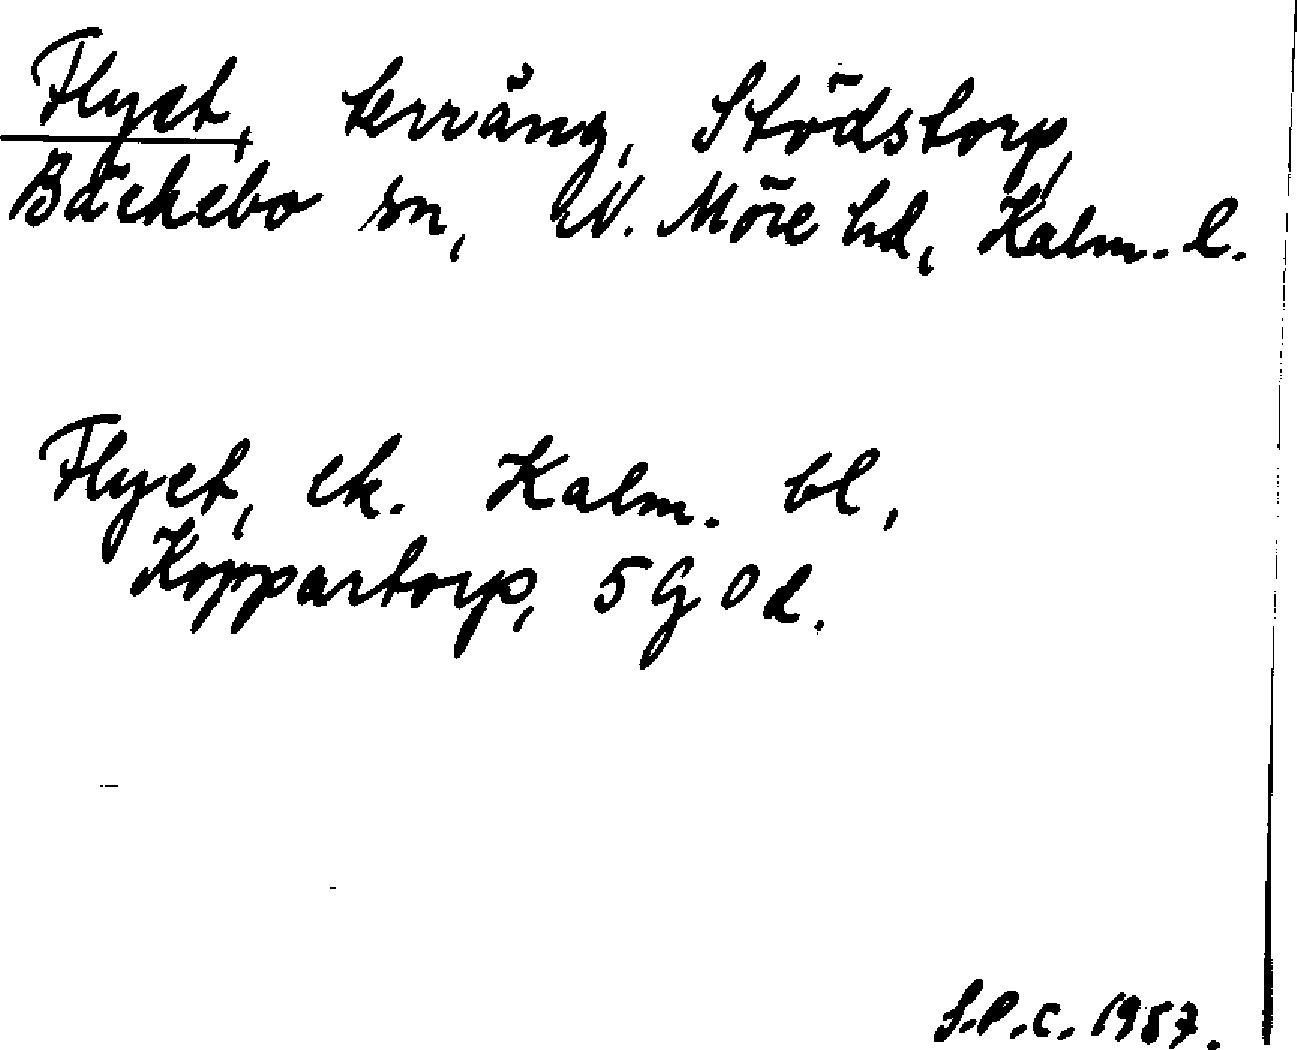 Flyet, terräng, Stödstorp,
Bäckebo sn, N. Möre hd, Kalm. l.
Flyet, ek. Kalm. bl,
Koppartorp, 5 G 0 d.
S.P.C. 1957.